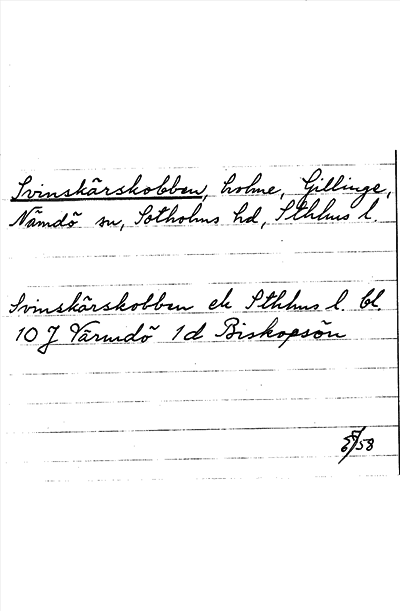 Svinskärskobben, holme, Gillinge,
Nämdö sn, Sotholms hd, Sthlms l.
Svinskärskobben ek Sthlms l. bl.
10 J Värmdö 1d Biskopsön
58